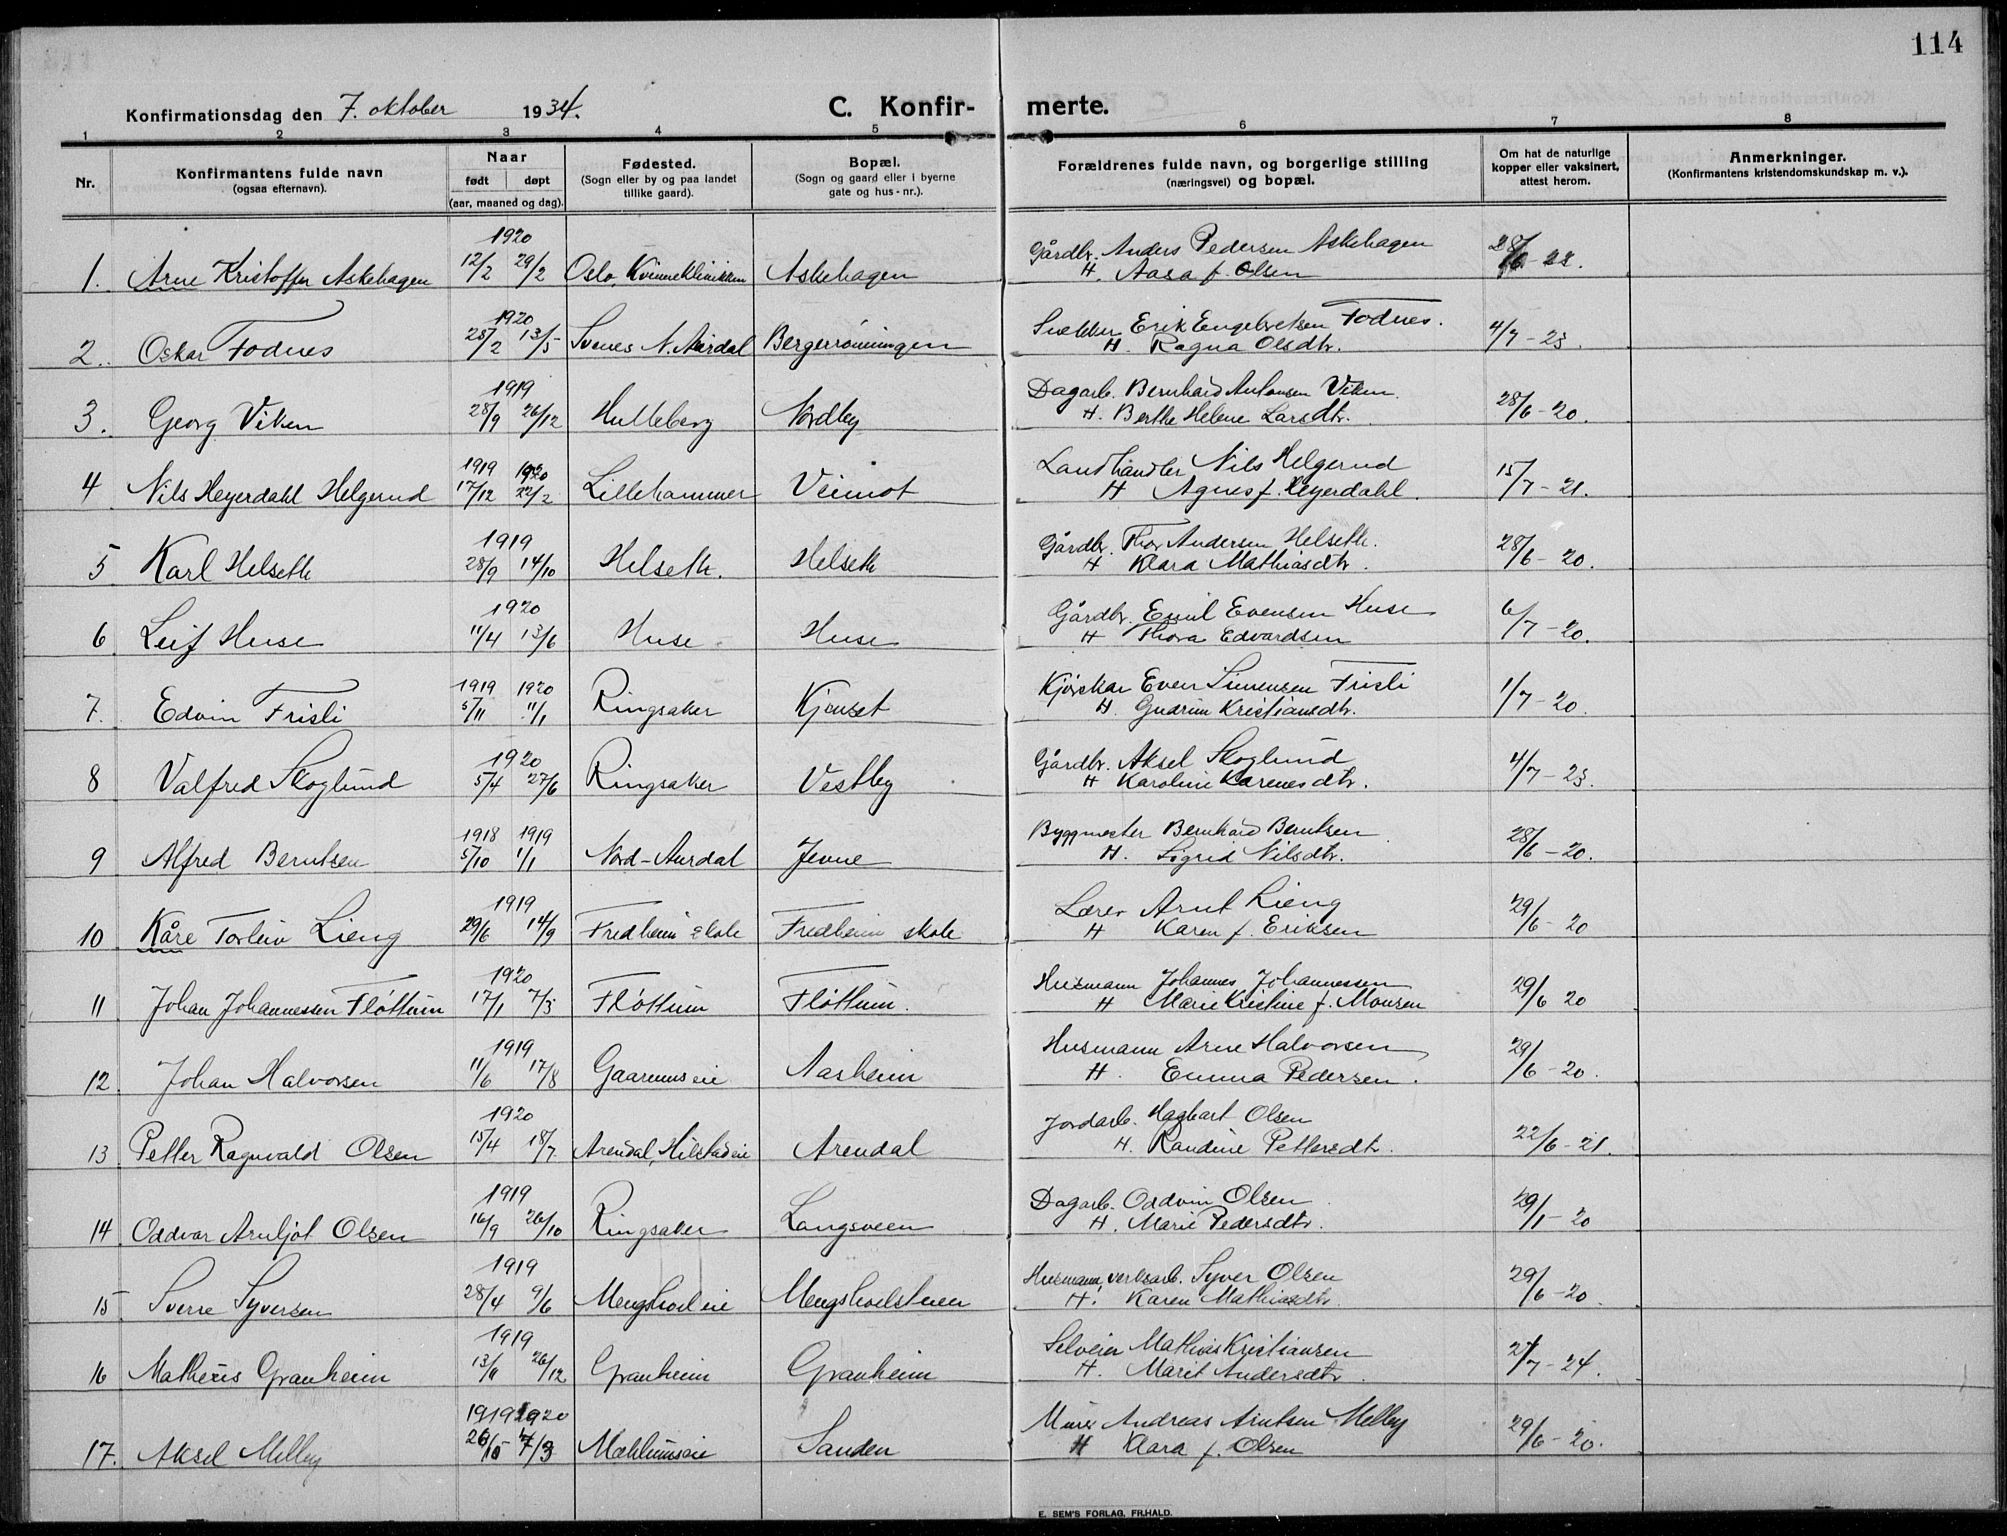 114
Konfirmationsdag den 7. oktober 1934.
C. Konfir- merte.
1 2 3 4 5 6 7 8
Nr.
Konfirmantens fulde navn
(ogsaa efternavn).
Naar
født døpt
(aar, maaned og dag).
Fødested.
(Sogn eller by og paa landet
tillike gaard).
Bopæl.
(Sogn og gaard eller i byerne
gate og hus-nr.).
Forældrenes fulde navn, og borgerlige stilling
(næringsvei) og bopæl.
Om hat de naturlige
kopper eller vaksinert,
attest herom.
Anmerkninger.
(Konfirmantens kristendomskundskap m. v.).
1920
Gårdbr. Anders Pedersen Askehagen
1. Arne Kristoffer Askehagen 12/2 29/2 Oslo, Kvinneklinikken Askehagen H. Aasa f. Olsen 28/6-
1920
Snekker Erik Engebretsen Fodnes.
2. Oskar Fodnes 28/2 13/5 Svenes N. Aurdal Bergerrønningen H. Ragna Olsdtr. 4/7-23.
1919
Dagarb. Bernhard Antonsen Viken
3. Georg Viken 28/9 26/12 Hulleberg Nordby H. Berthe Helene Larsdtr. 28/6-20.
1919 1920
Landhandler Nils Helgerud
4 Nils Heyerdahl Helgerud 17/12 22/2 Lillehammer Veimot H Agnes f. Heyerdahl. 15/7-21.
1919
Gårdbr. Thor Andersen Helseth.
5 Karl Helseth 28/9 14/10 Helseth. Helseth H Klara Mathiasdtr. 28/6-20.
1920
Gårdbr. Emil Evensen Huse
6 Leif Huse 11/4 13/6 Huse Huse H Thora Edvardsen 6/7-20.
1919 1920
Kjørekar Even Simensen Frisli
7. Edvin Frisli 5/11 11/1 Ringsaker Kjonset H. Gudrun Kristiansdtr. 1/7-20.
1920
Gårdbr. Aksel Skoglund
8 Valfred Skoglund 5/4 27/6 Ringsaker Vestby H Karoline Karenesdtr. 4/7-23.
1918 1919
Byggmester Bernhard Berntsen
9 Alfred Berntsen 5/10 1/1 Nord-Aurdal Jevne H. Sigrid Nilsdtr. 28/6-20.
1919
Lærer Arnt Lieng
10 Kåre Torleiv Lieng 29/6 14/9 Fredheim skole Fredheim skole H Karen f. Eriksen 29/6-20
1920
Husmann Johannes Johannessen
11 Johan Johannessen Fløttum 17/1 7/3 Fløttum Fløttum. H Marie Kristine f. Monsen 29/6 20
1919
Husmann Arne Halvorsen
12. Johan Halvorsen 11/6 17/8 Gaarumseie Aasheim H. Emma Pedersen. 29/6-20.
1920
Jordarb. Hagbart Olsen
13 Petter Ragnvald Olsen 15/4 18/7 Arendal, Hilstadeie Arendal H. Randine Pettersdtr. 22/6-21.
1919
Dagarb. Oddvin Olsen
14 Oddvar Arnljot Olsen 16/9 26/10 Ringsaker Langsveen H. Marie Pedersdtr. 29/1-20
1919
Husmann, verksarb. Syver Olsen
15 Sverre Syversen 28/4 9/6 Mengshoeleie Mengshoelstuen H. Karen Mathiasdtr 29/6-20.
1919
Selveier Mathias Kristiansen
16 Matheus Granheim 13/11 26/12 Granheim Granheim H. Marit Andersdtr. 27/7-24.
1919 1920
Murer Andreas Arntsen Melby
17. Aksel Melby 26/10 7/3 Mæhlumseie Sanden H Klara f. Olsen 29/6-20.
E. SEM'S FORLAG, FR.HALD.